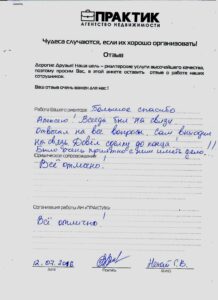 ПРАКТИК
АГЕНТСТВО НЕДВИЖИМОСТИ
Чудеса случаются, если их хорошо организовать!
Отзыв
Дорогие Друзья! Наша цель - риэлторские услуги высочайшего качества,
поэтому просим Вас, в этой анкете оставить отзыв о работе наших
сотрудников.
Ваш отзыв очень важен для нас!
Работа Вашего риэлтора: Большое спасибо
Всегда был на связи
Отвечал на все вопросы. Сам выходил
на связь. Довёл сделку до конца
Было очень приятно с ним иметь дело!!
Юридическое сопровождение:
Всё отлично!
Организация работы АН «ПРАКТИК»
Всё отлично!
дата
подпись